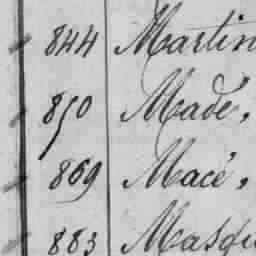 844 Martin
850 Madé,
869 Macé,
883 Masqu